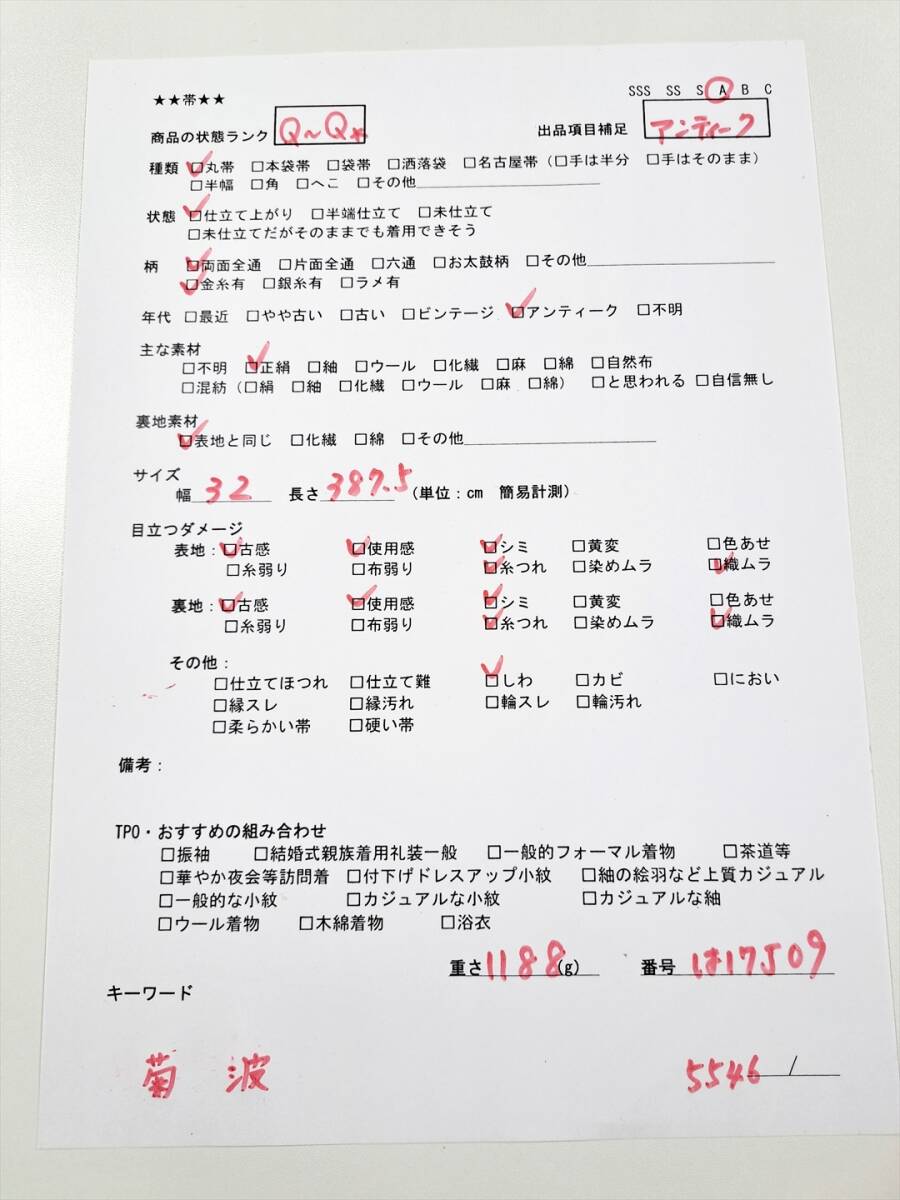 ★★帯★★
SSS SS S A B C
商品の状態ランク Q～Q* 出品項目補足 アンティーク
種類 □丸帯 □本袋帯 □袋帯 □洒落袋 □名古屋帯（□手は半分 □手はそのまま）
□半幅 □角 □へこ □その他
状態 □仕立て上がり □半端仕立て □未仕立て
□未仕立てだがそのままでも着用できそう
柄 □両面全通 □片面全通 □六通 □お太鼓柄 □その他
□金糸有 □銀糸有 □ラメ有
年代 □最近 □やや古い □古い □ビンテージ □アンティーク □不明
主な素材
□不明 □正絹 □紬 □ウール □化繊 □麻 □綿 □自然布
□混紡（□絹 □紬 □化繊 □ウール □麻 □綿） □と思われる □自信無し
裏地素材
□表地と同じ □化繊 □綿 □その他
サイズ
幅 32 長さ 387.5（単位：cm 簡易計測）
目立つダメージ
表地：□古感 □使用感 □シミ □黄変 □色あせ
□糸弱り □布弱り □糸つれ □染めムラ □織ムラ
裏地：□古感 □使用感 □シミ □黄変 □色あせ
□糸弱り □布弱り □糸つれ □染めムラ □織ムラ
その他：
□仕立てほつれ □仕立て難 □しわ □カビ □におい
□縁スレ □縁汚れ □輪スレ □輪汚れ
□柔らかい帯 □硬い帯
備考：
TPO・おすすめの組み合わせ
□振袖 □結婚式親族着用礼装一般 □一般的フォーマル着物 □茶道等
□華やか夜会等訪問着 □付下げドレスアップ小紋 □紬の絵羽など上質カジュアル
□一般的な小紋 □カジュアルな小紋 □カジュアルな紬
□ウール着物 □木綿着物 □浴衣
重さ 1188 (g) 番号 は17509
キーワード
菊 波 5546 /